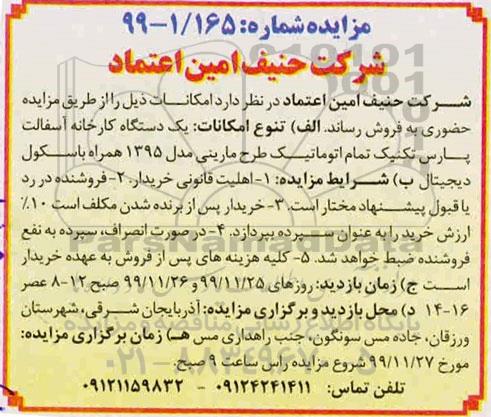 مزایده شماره: ۹۹-۱/۱۶۵
شرکت حنیف امین اعتماد
شرکت حنیف امین اعتماد در نظر دارد امکانات ذیل را از طریق مزایده
حضوری به فروش رساند. الف) تنوع امکانات: یک دستگاه کارخانه آسفالت
پارس تکنیک تمام اتوماتیک طرح مارینی مدل ۱۳۹۵ همراه باسکول
دیجیتال ب) شرایط مزایده: ۱-اهلیت قانونی خریدار. ۲-فروشنده در رد
یا قبول پیشنهاد مختار است. ۳-خریدار پس از برنده شدن مکلف است ۱۰٪
ارزش خرید را به عنوان سپرده بپردازد. ۴-در صورت انصراف، سپرده به نفع
فروشنده ضبط خواهد شد. ۵- کلیه هزینه های پس از فروش به عهده خریدار
است ج) زمان بازدید: روزهای ۹۹/۱۱/۲۵ و ۹۹/۱۱/۲۶ صبح ۱۲-۸ عصر
۱۶-۱۴ د) محل بازدید و برگزاری مزایده: آذربایجان شرقی، شهرستان
ورزقان، جاده مس سونگون، جنب راهداری مس هـ) زمان برگزاری مزایده:
مورخ ۹۹/۱۱/۲۷ شروع مزایده راس ساعت ۹ صبح.
تلفن تماس: ۰۹۱۲۴۲۴۱۴۱۱ - ۰۹۱۲۱۱۵۹۸۳۲
ParsNamadData